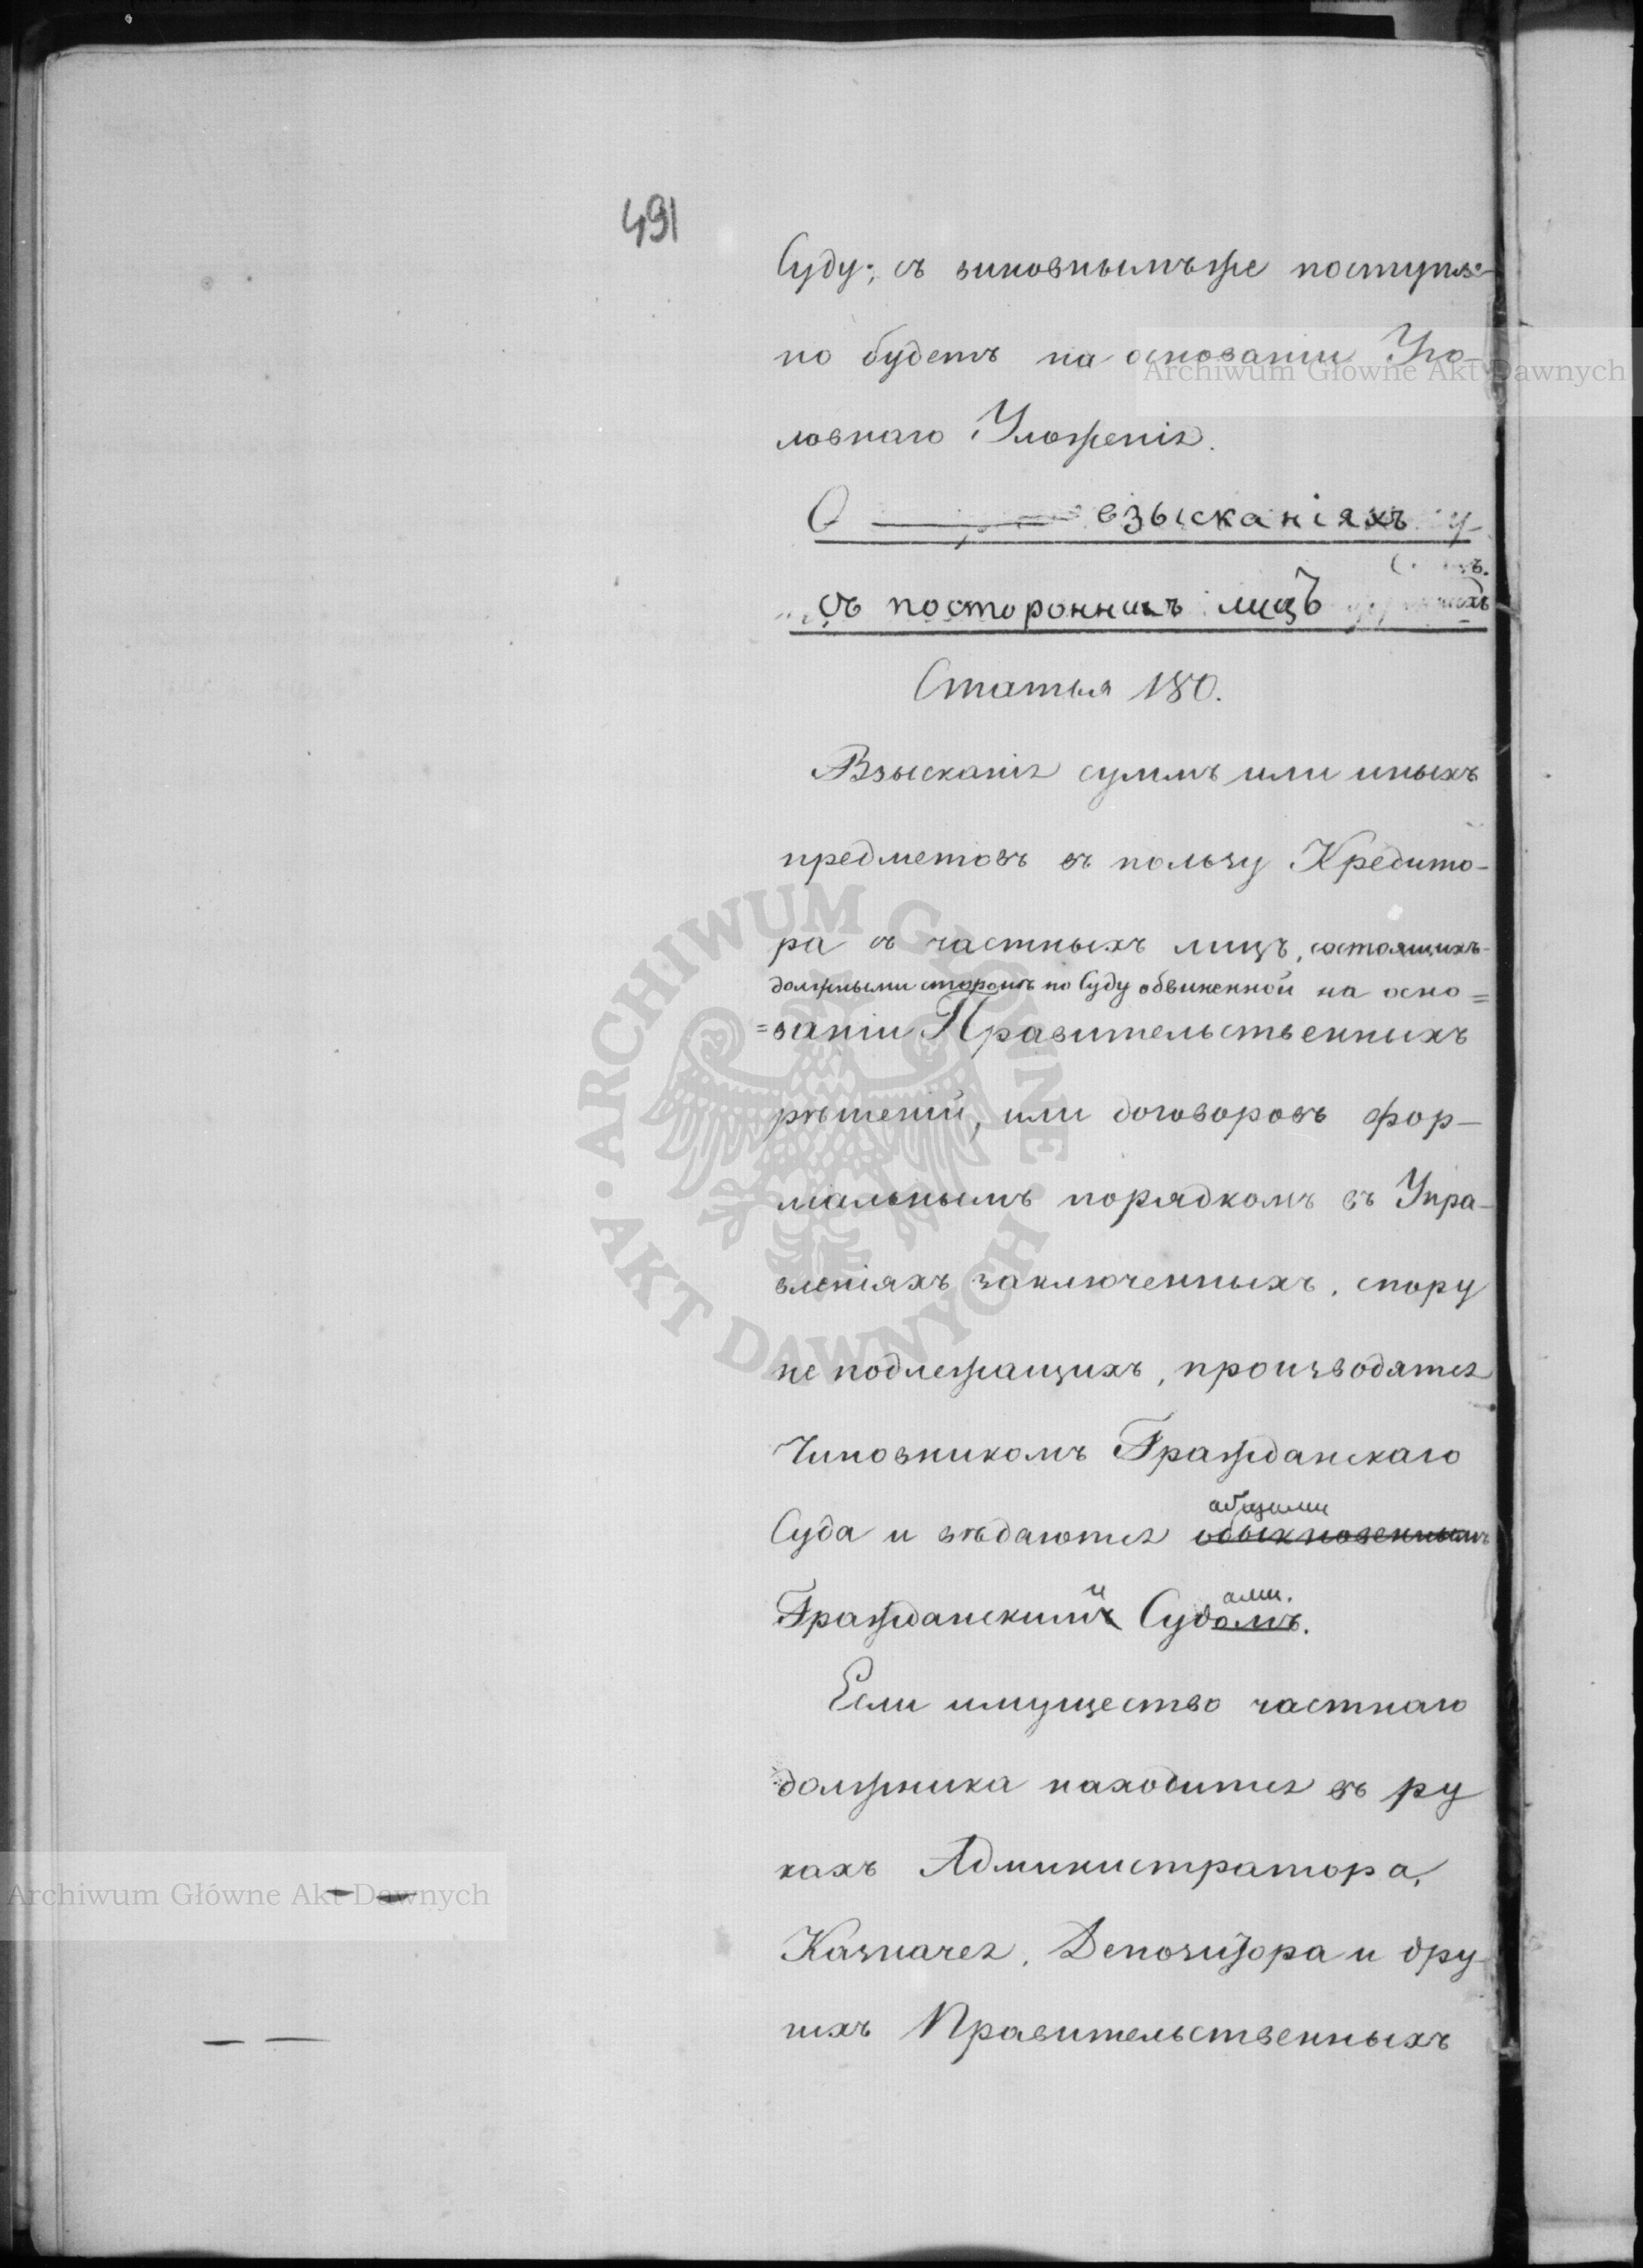 491
Суду; съ виновнымъ же поступле-
но будетъ на основаніи Уго-
ловнаго Уложенія.
О взысканіяхъ
съ постороннихъ лицъ
Статья 180.
Взысканія суммъ или иныхъ
предметовъ въ пользу Кредито-
ра съ частныхъ лицъ, состоящихъ
должными сторонѣ по Суду обвиненной на осно=
=ваніи Правительственныхъ
рѣшеній, или договоровъ фор-
мальнымъ порядкомъ въ Упра-
вленіяхъ заключенныхъ, спору
не подлежащихъ, производятся
Чиновникомъ Гражданскаго
общими
Суда и вѣдаются обыкновеннымъ
и ами.
Гражданскимъ Судомъ.
Если имущество частнаго
должника находится въ ру
кахъ Администратора,
Казначея, Депозитора и дру-
гихъ Правительственныхъ
Archiwum Główne Akt Dawnych
ARCHIWUM GŁÓWNE AKT DAWNYCH
Archiwum Główne Akt Dawnych